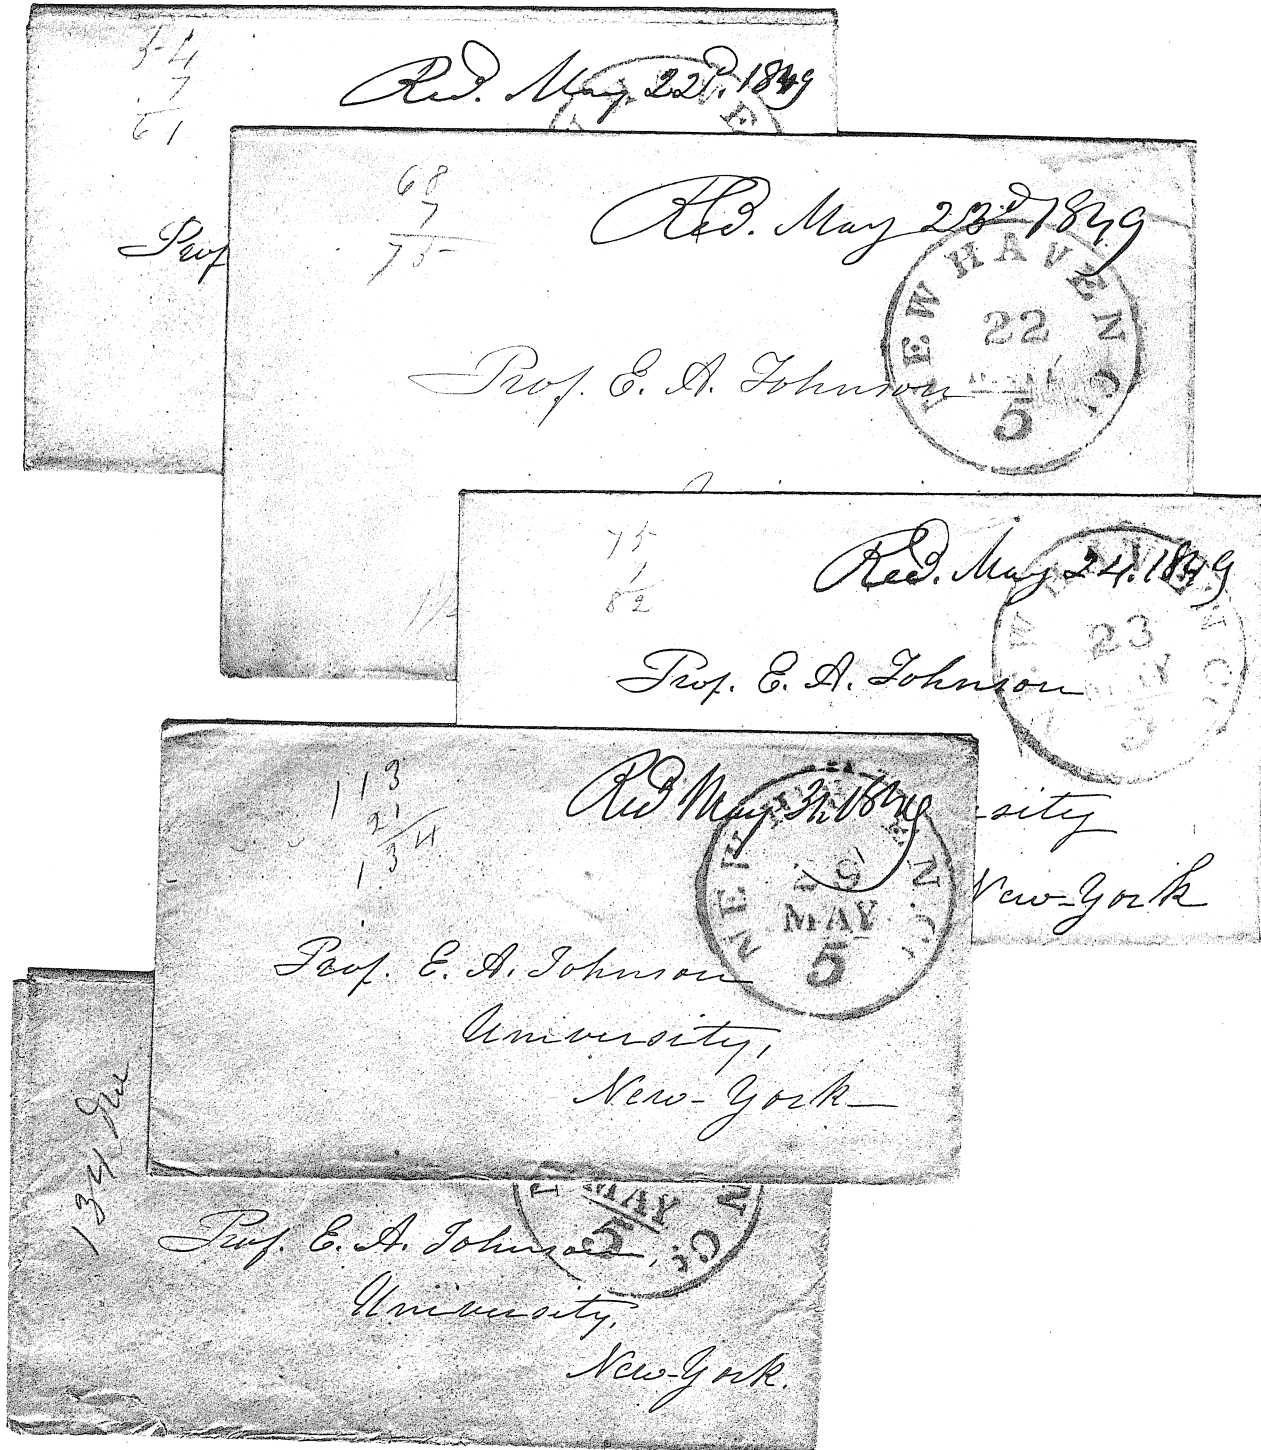 54
7
61
Recd. May 22d. 1849
Prof
68
7
75
Recd. May 23d 1849
NEW HAVEN Ct
22
MAY
5
Prof. E. A. Johnson
75
82
Recd. May 24. 1849
23
MAY
5
Prof. E. A. Johnson
sity
New-York
113
21
134
Recd May 31. 1849
NEW HAVEN Ct
MAY
5
Prof. E. A. Johnson
University,
New-York
134
MAY
5
Prof. E. A. Johnson,
University,
New-York.